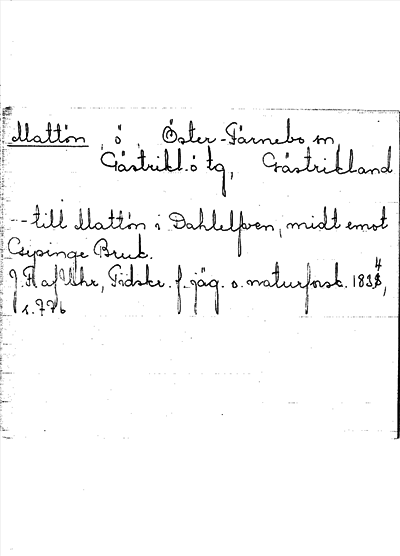 Mattön, ö, Öster-Färnebo sn,
Gästrikl. ö tg, Gästrikland
-- till Mattön i Dahlelfven, midt emot
Gysinge Bruk.
J. H. af Uhr, Tidskr. f. jäg. o. naturforsk. 1834,
s. 776